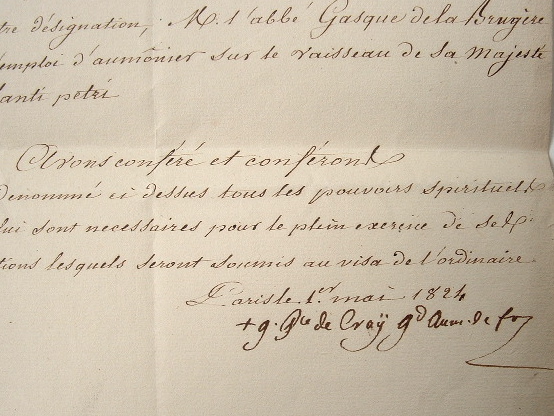 tre désignation, M. l'abbé Gasque de la Bruyère
emploi d'aumônier sur le vaisseau de sa Majesté
Santi petri
Avons conféré et conférons
denommé ci dessus tous les pouvoirs spirituels
lui sont necessaires pour le plein exercice de ses
tions lesquels seront soumis au visa de l'ordinaire
Paris le 1er mai 1824
+ g. Pce de Croÿ gd Aum. de fr